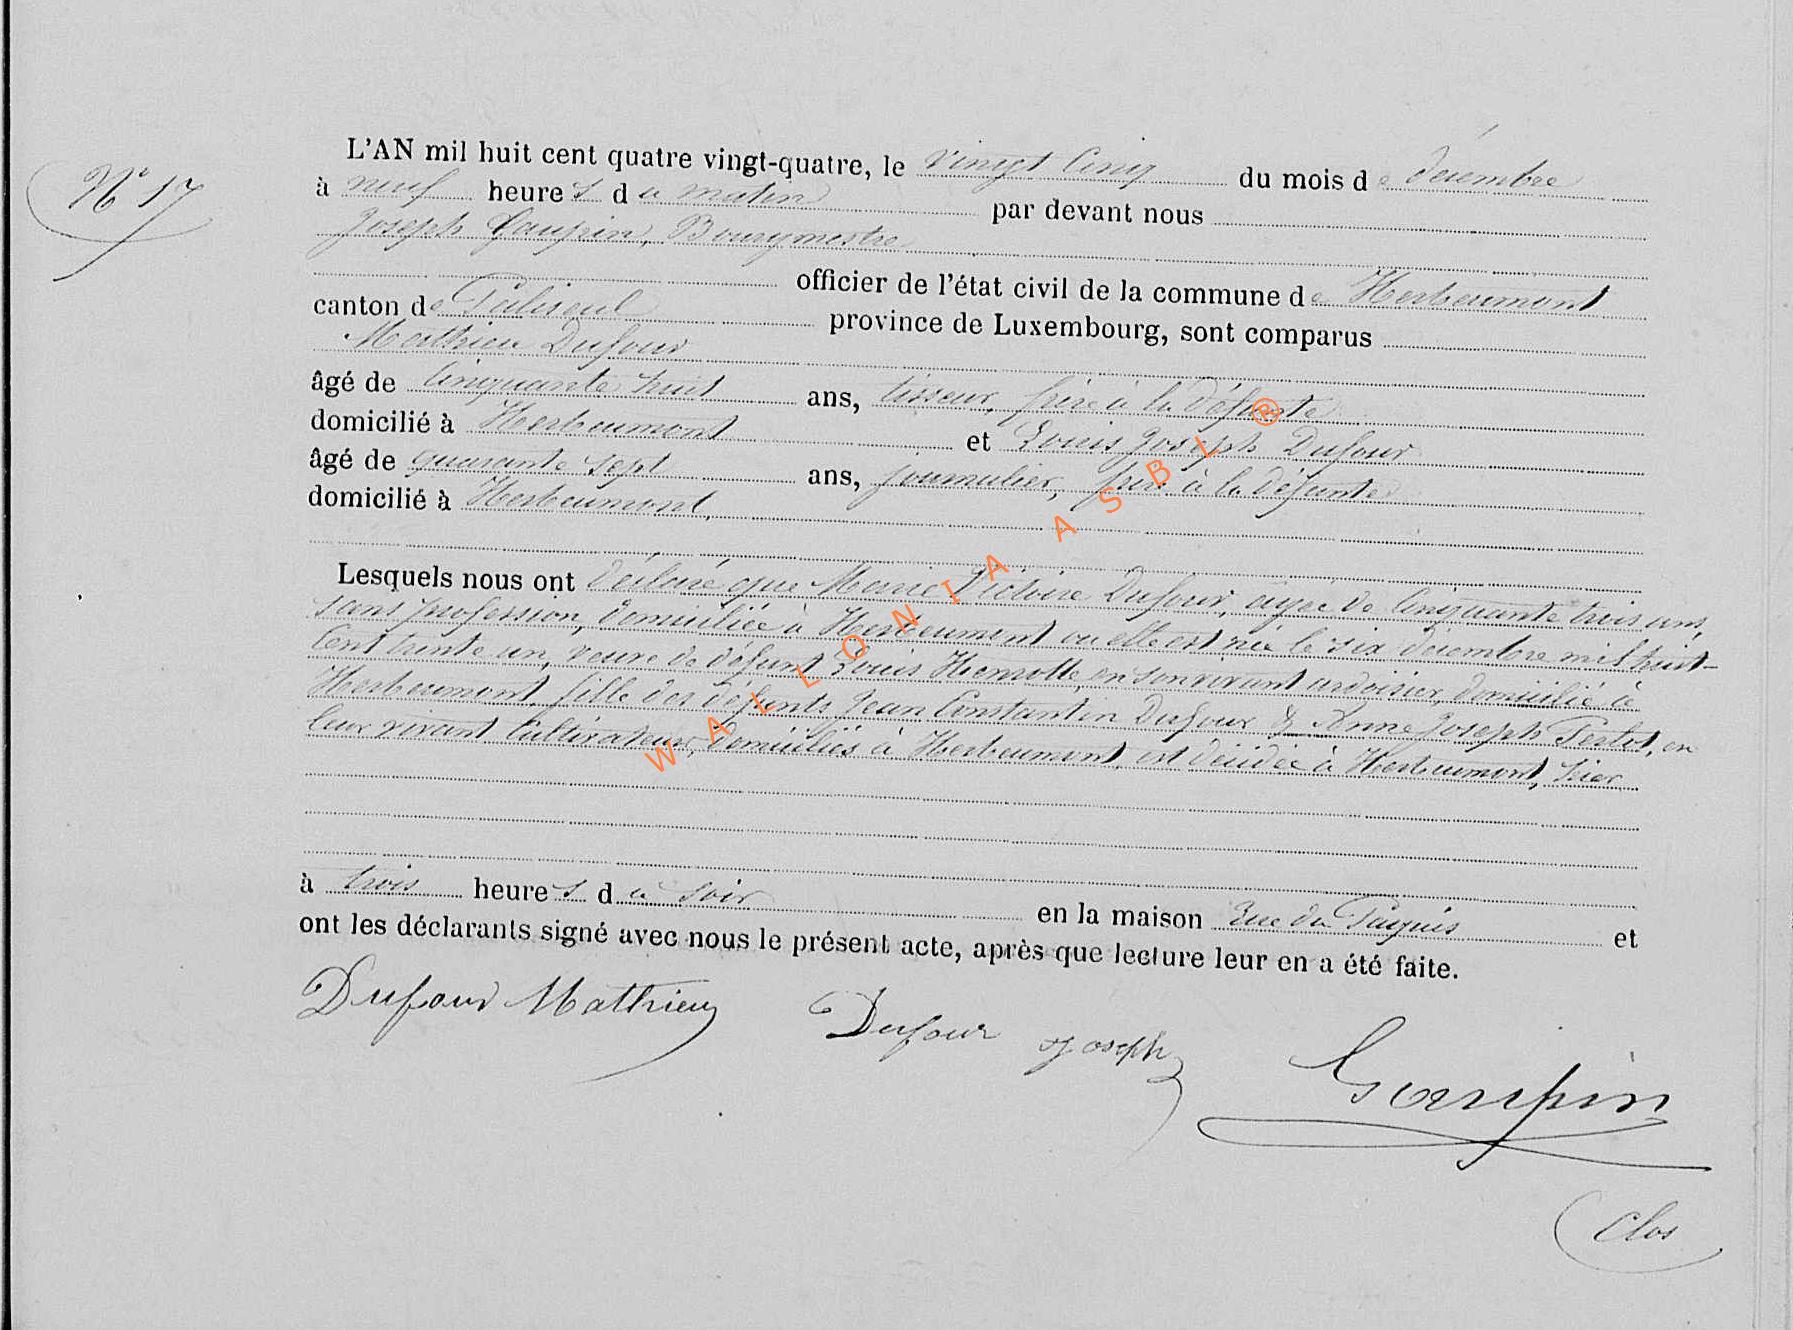 N° 17
L'AN mil huit cent quatre vingt-quatre, le vingt cinq du mois de décembre
à neuf heures du matin par devant nous
Joseph Gaupin, Bourgmestre
officier de l'état civil de la commune de Herbeumont
canton de Paliseul province de Luxembourg, sont comparus
Mathieu Dufour
âgé de cinquante huit ans, tisseur, frère à la défunte
domicilié à Herbeumont et Louis Joseph Dufour
âgé de quarante sept ans, journalier, frère à la défunte
domicilié à Herbeumont,
Lesquels nous ont déclaré que Marie Victoire Dufour, agée de cinquante trois ans,
sans profession, domiciliée à Herbeumont ou elle est née le six décembre mil huit-
cent trente un, veuve de défunt Louis Henrotte, en son vivant ardoisier, domicilié à
Herbeumont, fille des défunts Jean Constantin Dufour & Anne Joseph Pertot, en
leur vivant cultivateurs, domiciliés à Herbeumont, est décédée à Herbeumont, hier
à trois heures du soir en la maison Rue du Paquis et
ont les déclarants signé avec nous le présent acte, après que lecture leur en a été faite.
Dufour Mathieu Dufour Joseph Gaupin
Clos
WALLONIA ASBL ®